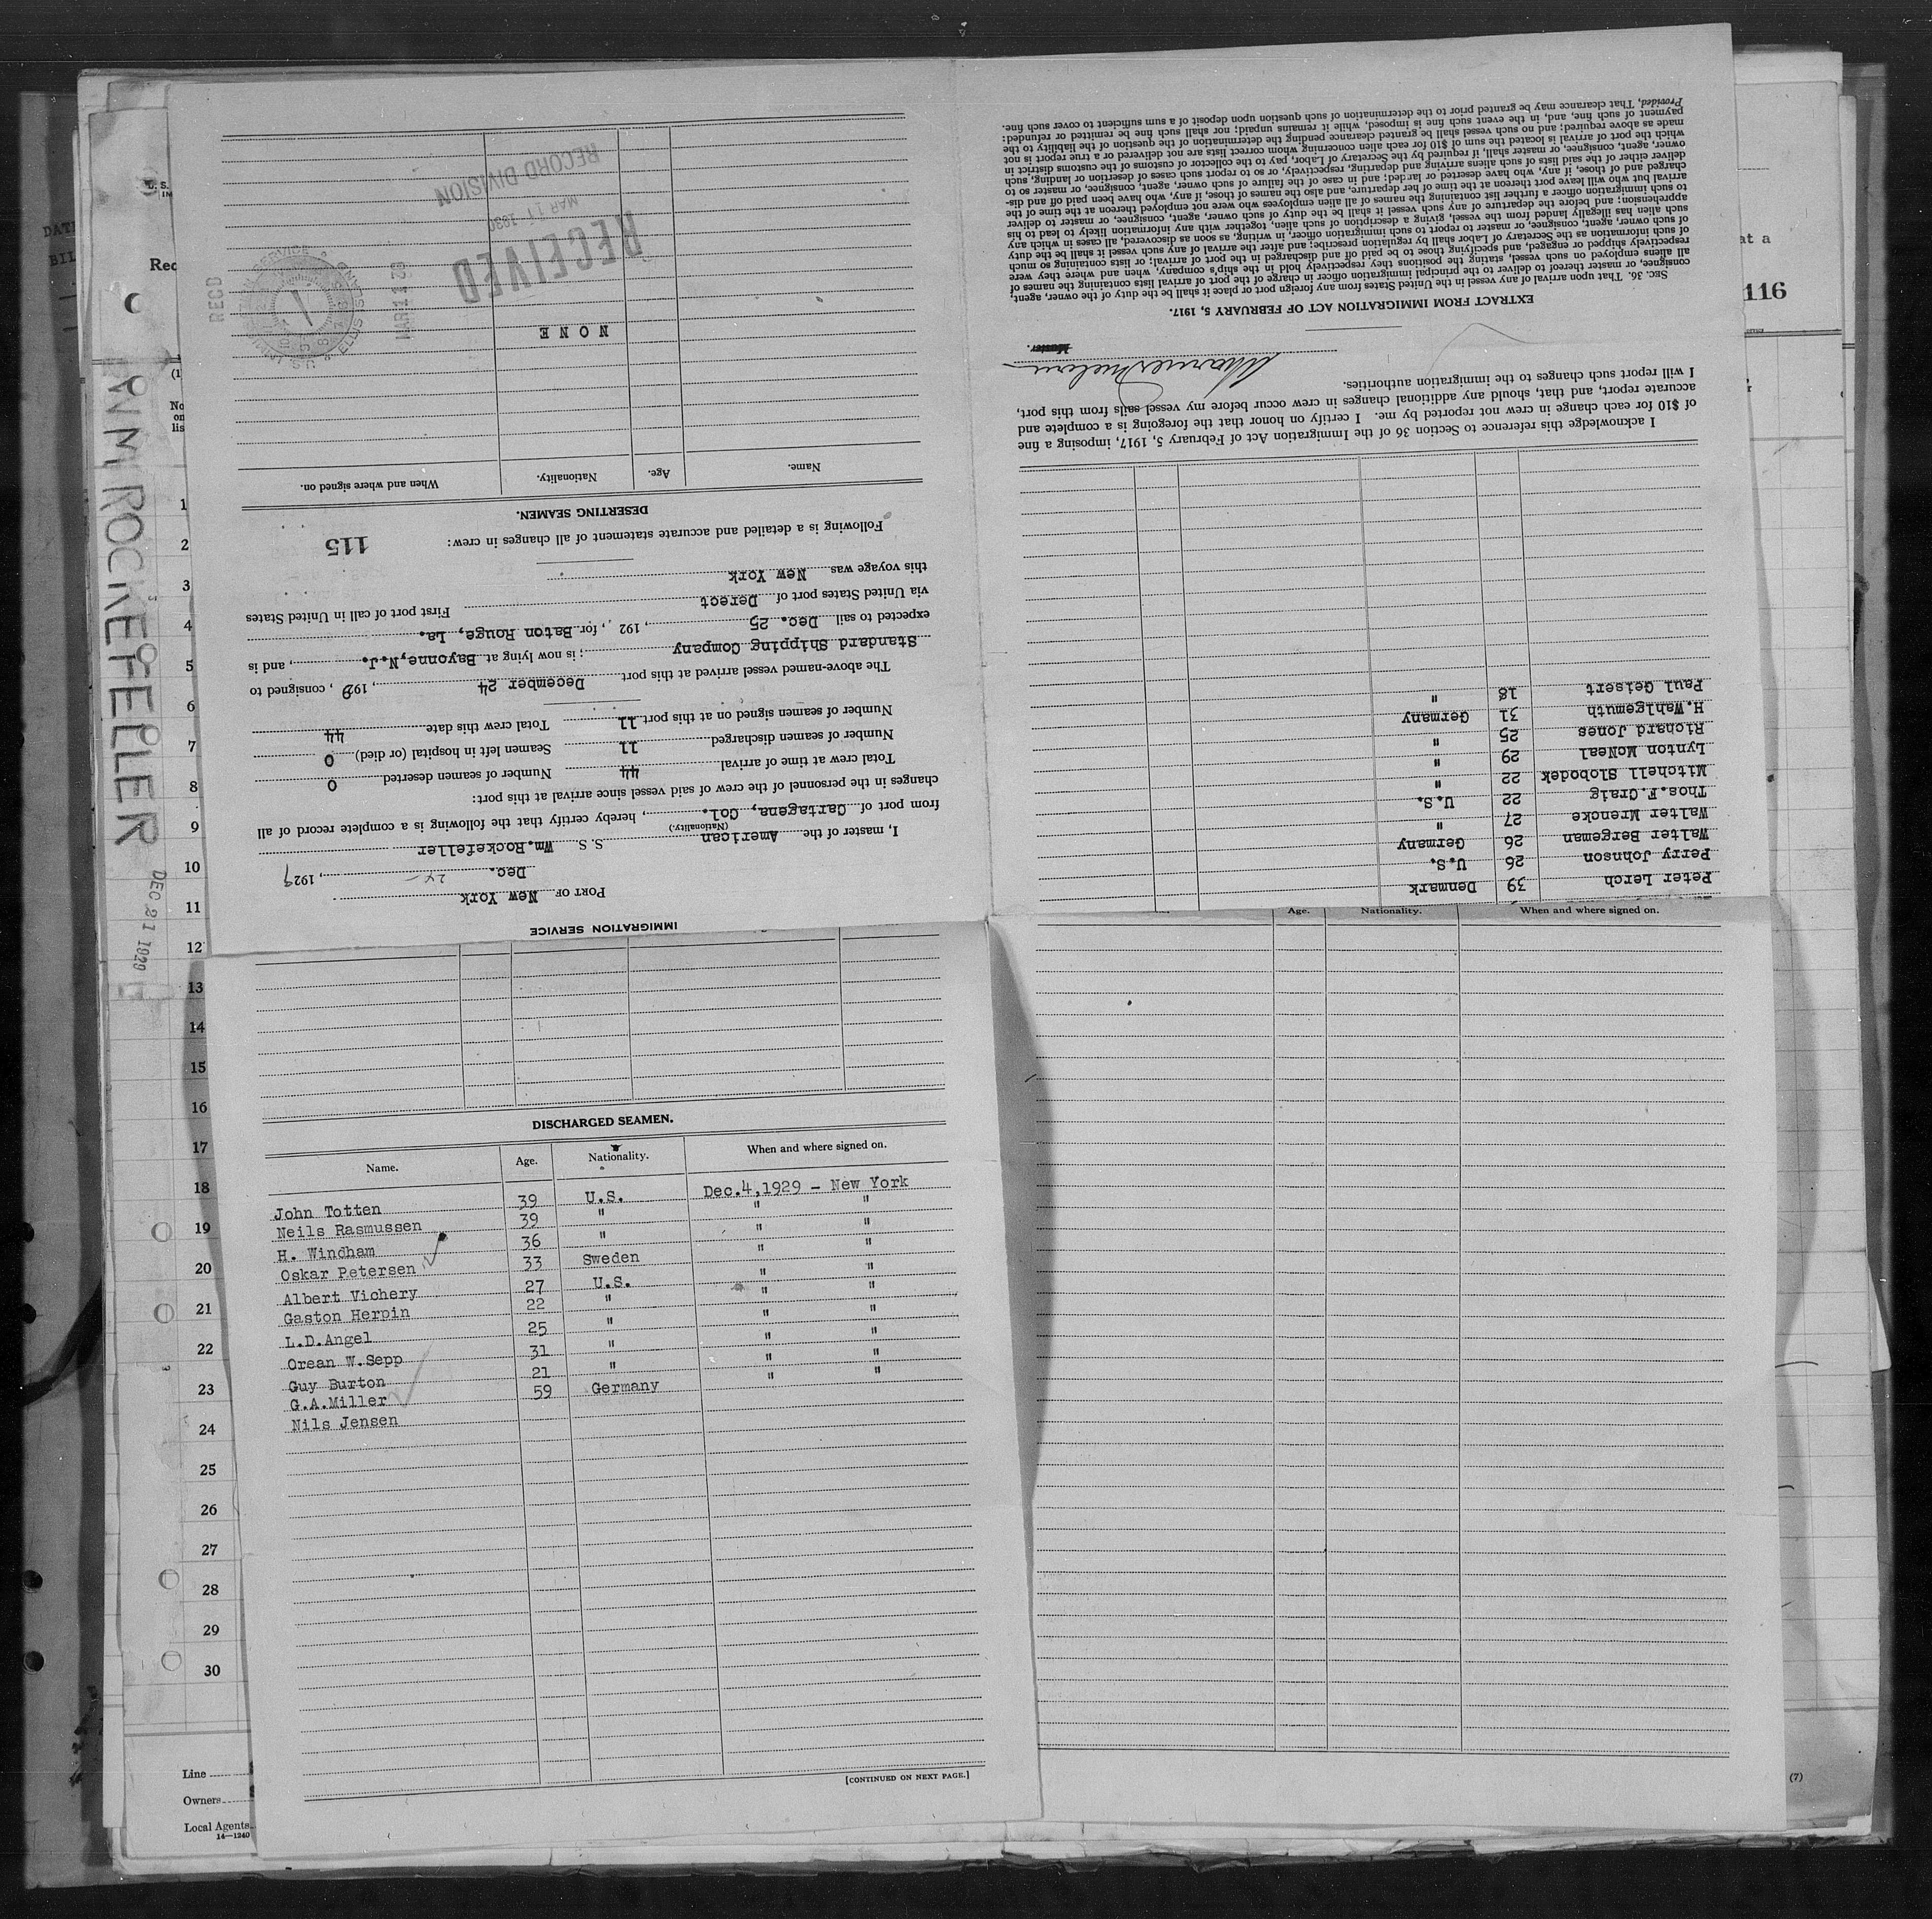 IMMIGRATION SERVICE
PORT OF New York
Dec. 24, 1929
I, master of the American S. S. Wm. Rockefeller
(Nationality.)
from port of Cartagena, Col., hereby certify that the following is a complete record of all
changes in the personnel of the crew of said vessel since arrival at this port:
Total crew at time of arrival 44 Number of seamen deserted 0
Number of seamen discharged 11 Seamen left in hospital (or died) 0
Number of seamen signed on at this port 11 Total crew this date 44
The above-named vessel arrived at this port December 24, 1929, consigned to
Standard Shipping Company; is now lying at Bayonne, N.J., and is
expected to sail Dec. 25, 192 , for Baton Rouge, La.
via United States port of Derect First port of call in United States
this voyage was New York
Following is a detailed and accurate statement of all changes in crew:
115
DESERTING SEAMEN.
Name. Age. Nationality. When and where signed on.
NONE
RECEIVED
MAR 11 1930
RECORD DIVISION
REC'D
DISCHARGED SEAMEN.
Name. Age. Nationality. When and where signed on.
John Totten 39 U.S. Dec.4,1929 - New York
Neils Rasmussen 39 " " "
H. Windham 36 " " "
Oskar Petersen 33 Sweden " "
Albert Vichery 27 U.S. " "
Gaston Herpin 22 " " "
L.D.Angel 25 " " "
Orean W.Sepp 31 " " "
Guy Burton 21 " " "
G.A.Miller 59 Germany " "
Nils Jensen
[CONTINUED ON NEXT PAGE.]
Age. Nationality. When and where signed on.
Peter Lerch 39 Denmark
Perry Johnson 26 U.S.
Walter Bergeman 26 Germany
Walter Mrencke 27 "
Thos.F.Craig 22 U.S.
Mitchell Slobodek 22 "
Lynton McNeal 29 "
Richard Jones 25 "
H.Wahlgemuth 31 Germany
Paul Geisert 18 "
I acknowledge this reference to Section 36 of the Immigration Act of February 5, 1917, imposing a fine
of $10 for each change in crew not reported by me. I certify on honor that the foregoing is a complete and
accurate report, and that, should any additional changes in crew occur before my vessel sails from this port,
I will report such changes to the immigration authorities.
Master.
EXTRACT FROM IMMIGRATION ACT OF FEBRUARY 5, 1917.
SEC. 36. That upon arrival of any vessel in the United States from any foreign port or place it shall be the duty of the owner, agent,
consignee, or master thereof to deliver to the principal immigration officer in charge of the port of arrival lists containing the names of
all aliens employed on such vessel, stating the positions they respectively hold in the ship's company, when and where they were
respectively shipped or engaged, and specifying those to be paid off and discharged in the port of arrival; or lists containing so much
of such information as the Secretary of Labor shall by regulation prescribe; and after the arrival of any such vessel it shall be the duty
of such owner, agent, consignee, or master to report to such immigration officer, in writing, as soon as discovered, all cases in which any
such alien has illegally landed from the vessel, giving a description of such alien, together with any information likely to lead to his
apprehension; and before the departure of any such vessel it shall be the duty of such owner, agent, consignee, or master to deliver
to such immigration officer a further list containing the names of all alien employees who were not employed thereon at the time of the
arrival but who will leave port thereon at the time of her departure, and also the names of those, if any, who have been paid off and dis-
charged and of those, if any, who have deserted or landed; and in case of the failure of such owner, agent, consignee, or master so to
deliver either of the said lists of such aliens arriving and departing, respectively, or so to report such cases of desertion or landing, such
owner, agent, consignee, or master, shall, if required by the Secretary of Labor, pay to the collector of customs of the customs district in
which the port of arrival is located the sum of $10 for each alien concerning whom correct lists are not delivered or a true report is not
made as above required; and no such vessel shall be granted clearance pending the determination of the question of the liability to the
payment of such fine, and, in the event such fine is imposed, while it remains unpaid; nor shall such fine be remitted or refunded:
Provided, That clearance may be granted prior to the determination of such question upon deposit of a sum sufficient to cover such fine.
WM ROCKEFELLER
DEC 21 1929
1
2
3
4
5
6
7
8
9
10
11
12
13
14
15
16
17
18
19
20
21
22
23
24
25
26
27
28
29
30
Line
Owners
Local Agents
14—1240
at a
116
(7)